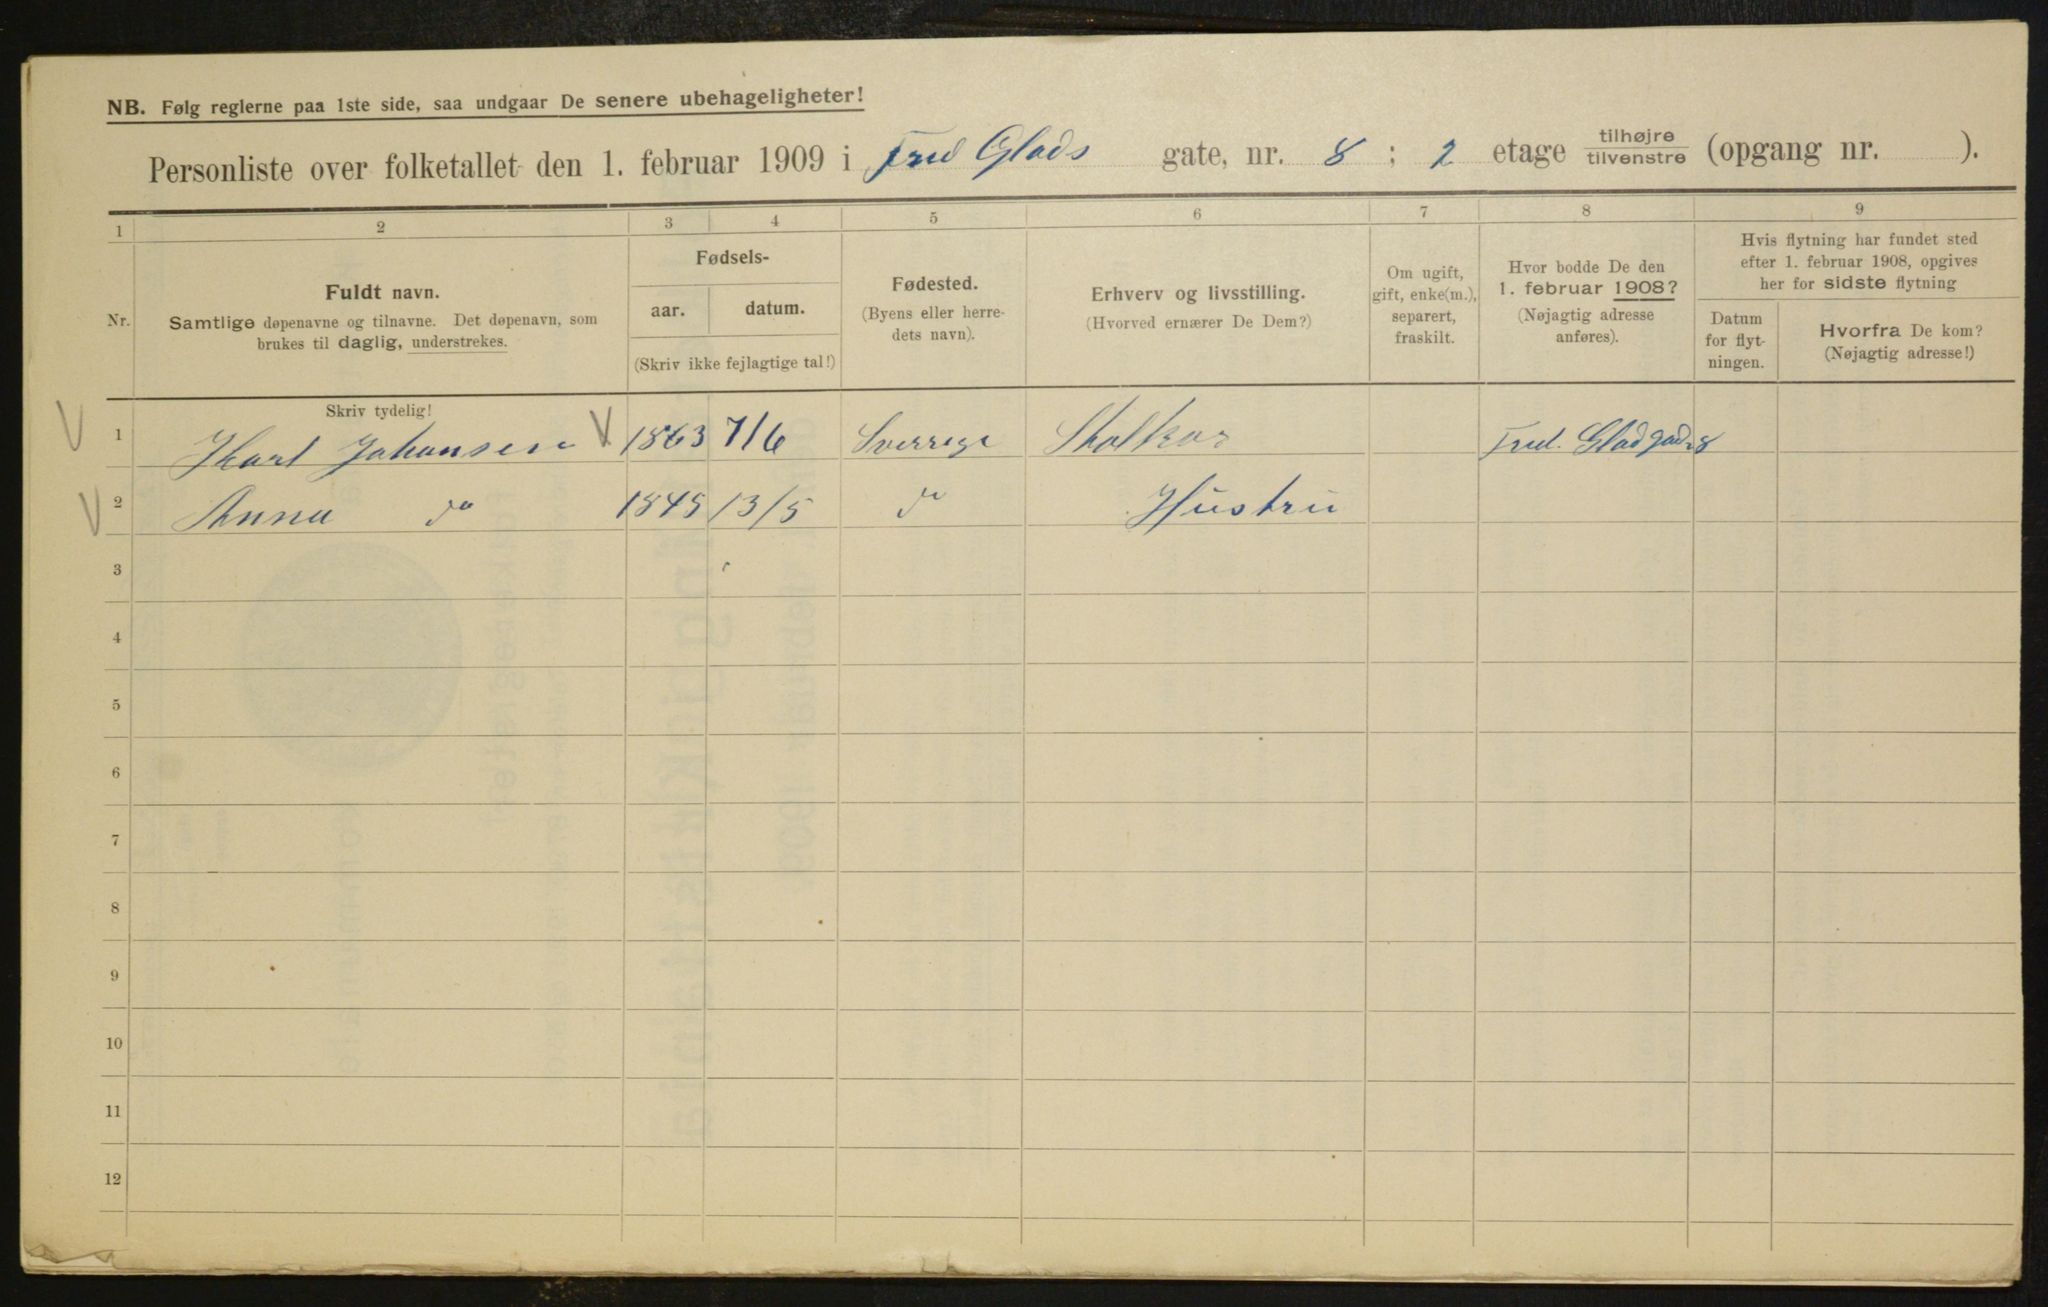 NB. Følg reglerne paa 1ste side, saa undgaar De senere ubehageligheter!
Personliste over folketallet den 1. februar 1909 i Fred Glads gate, nr. 8 ; 2 etage tilhøjre/tilvenstre (opgang nr. ).
1 2 3 4 5 6 7 8 9
Nr.
Fuldt navn.
Samtlige døpenavne og tilnavne. Det døpenavn, som
brukes til daglig, understrekes.
Fødsels-
aar. datum.
(Skriv ikke fejlagtige tal!)
Fødested.
(Byens eller herre-
dets navn).
Erhverv og livsstilling.
(Hvorved ernærer De Dem?)
Om ugift,
gift, enke(m.),
separert,
fraskilt.
Hvor bodde De den
1. februar 1908?
(Nøjagtig adresse
anføres).
Hvis flytning har fundet sted
efter 1. februar 1908, opgives
her for sidste flytning
Datum
for flyt-
ningen.
Hvorfra De kom?
(Nøjagtig adresse!)
Skriv tydelig!
1 Karl Johansen 1863 7/6 Sverrige Fred. Glad gad 8
2 Anna do 1845 13/5 do Hustru
3
4
5
6
7
8
9
10
11
12